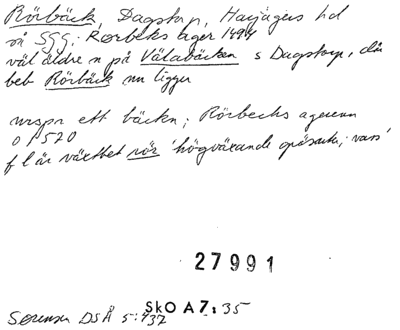 Rörbäck, Dagstorp, Harjagers hd
på SGG: Rørbeks ager 1494
väl äldre n på Välabäcken s Dagstorp, där
beb Rörbäck nu ligger
urspr ett bäckn; Rörbechs ageren
o 1570
f l är växtbet rör 'högväxande gräsart; vass'
27991
SkO A7: 35
Sørensen DSÅ 5:432